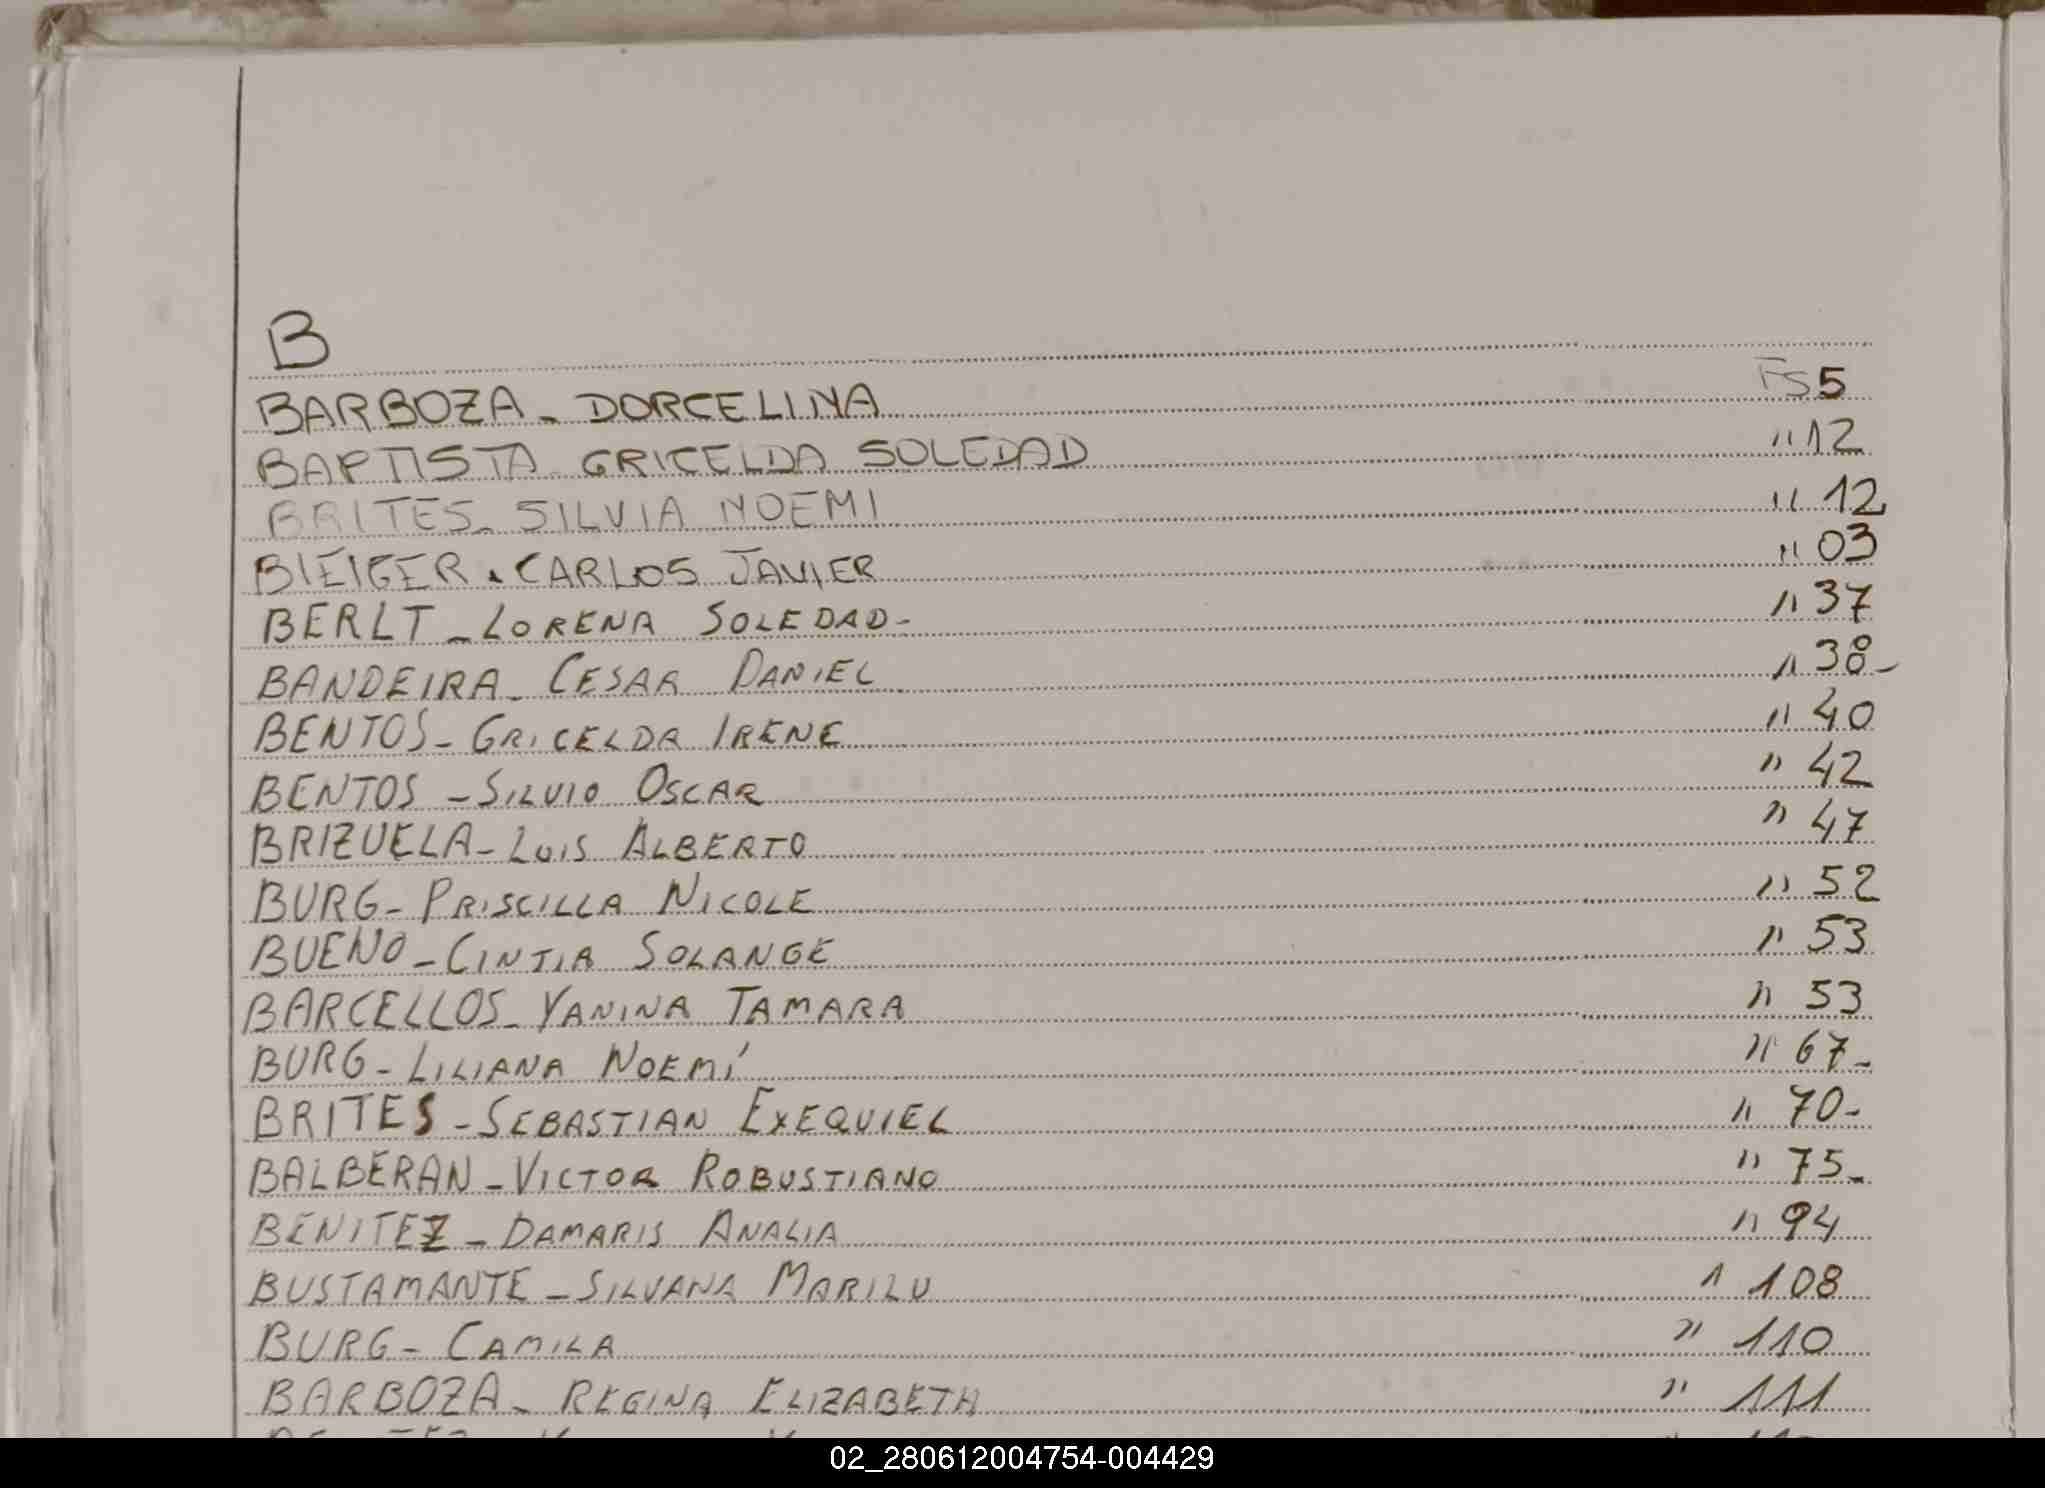 B
BARBOZA - DORCELINA FS 5
BAPTISTA GRICELDA SOLEDAD " 12
BRITES - SILVIA NOEMI " 12
BIEIGER - CARLOS JAVIER " 03
BERLT - LORENA SOLEDAD - " 37
BANDEIRA - CESAR DANIEL " 38 -
BENTOS - GRICELDA IRENE " 40
BENTOS - SILVIO OSCAR " 42
BRIZUELA - LUIS ALBERTO " 47
BURG - PRISCILLA NICOLE " 52
BUENO - CINTIA SOLANGE " 53
BARCELLOS - YANINA TAMARA " 53
BURG - LILIANA NOEMÍ " 67 -
BRITES - SEBASTIAN EXEQUIEL " 70 -
BALBERAN - VICTOR ROBUSTIANO " 75 -
BENITEZ - DAMARIS ANALIA " 94
BUSTAMANTE - SILVANA MARILU " 108
BURG - CAMILA " 110
BARBOZA - REGINA ELIZABETH " 111
02_280612004754-004429